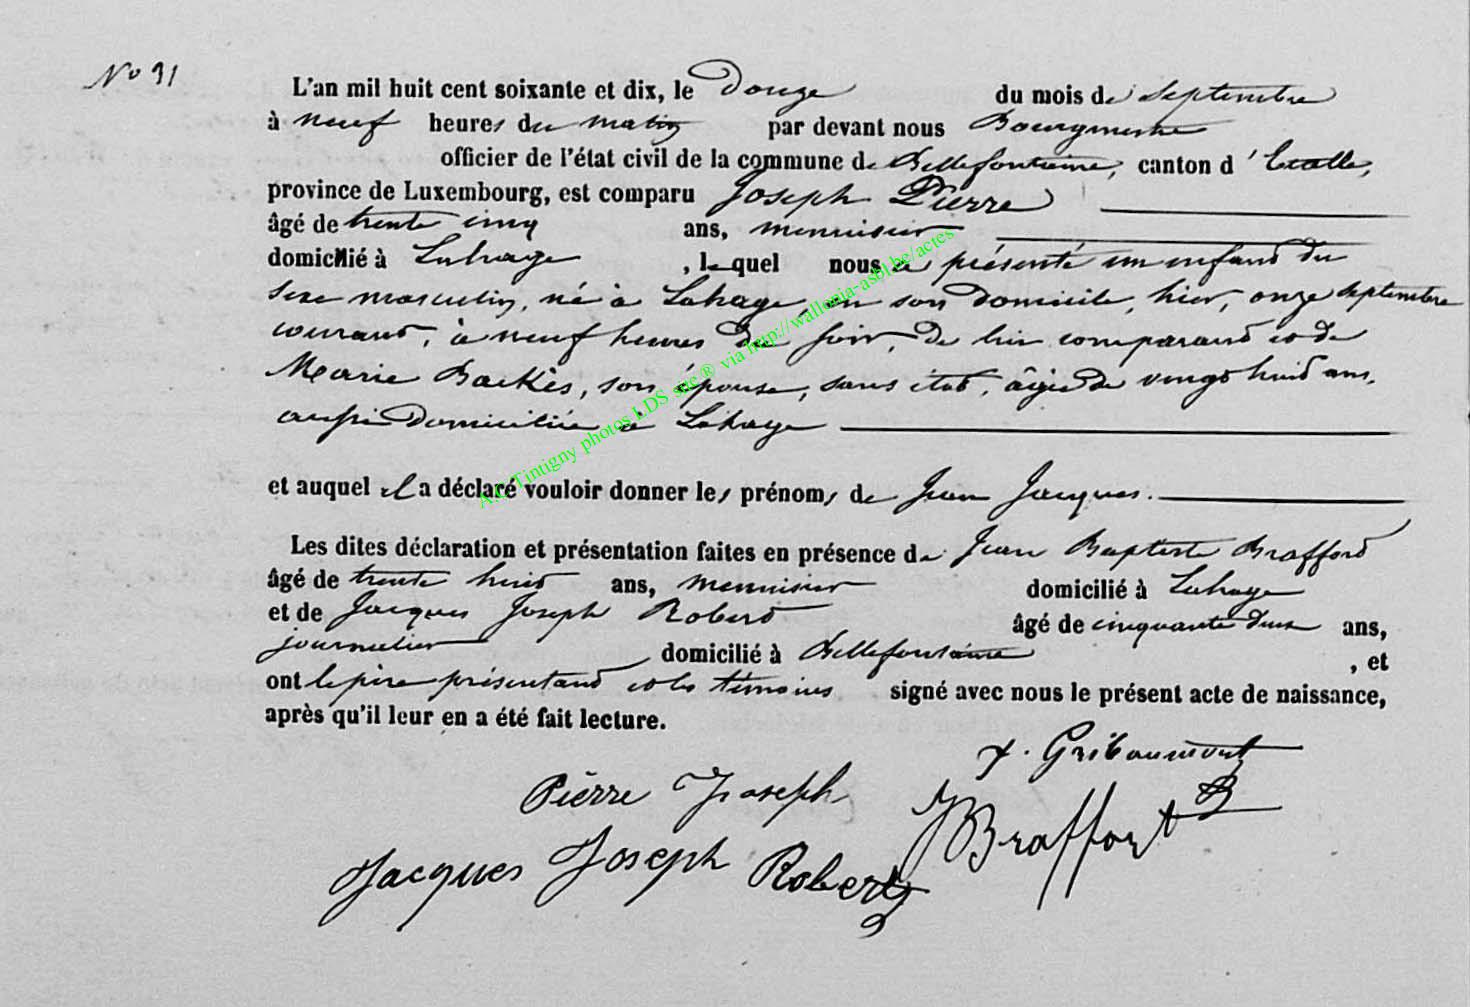 No 31
L'an mil huit cent soixante et dix, le Douze du mois de Septembre
à neuf heures du matin par devant nous Bourgmestre
officier de l'état civil de la commune de Bellefontaine, canton d'Etalle,
province de Luxembourg, est comparu Joseph Pierre
âgé de trente cinq ans, menuisier
domicilié à Lahage, lequel nous a présenté un enfant du
sexe masculin, né à Lahage, en son domicile, hier, onze septembre
courant, à neuf heures du soir, de lui comparant et de
Marie Backès, son épouse, sans état, âgée de vingt huit ans,
aussi domiciliée à Lahage
et auquel il a déclaré vouloir donner les prénoms de Jean Jacques.
Les dites déclaration et présentation faites en présence de Jean Baptiste Braffort
âgé de trente huit ans, menuisier domicilié à Lahage
et de Jacques Joseph Robert âgé de cinquante deux ans,
journalier domicilié à Bellefontaine, et
ont le père présentant et les témoins signé avec nous le présent acte de naissance,
après qu'il leur en a été fait lecture.
Gribaumont
Pierre Joseph
JBraffort
Jacques Joseph Robert
A.C Tintigny photos LDS slc® via http://wallonia-asbl.be/actes